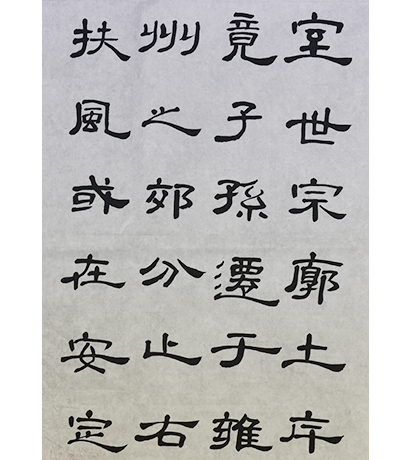 室世宗廓土斥
竟子孫遷于雍
州之郊分止右
扶風或在安定